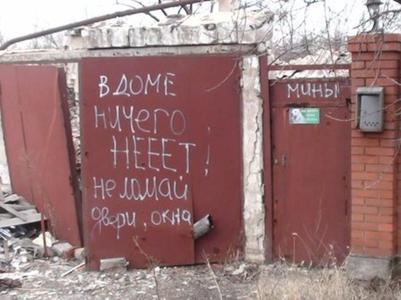 В ДОМЕ
НИЧЕГО
НЕЕЕТ!
не ломай
двери, окна
МИНЫ